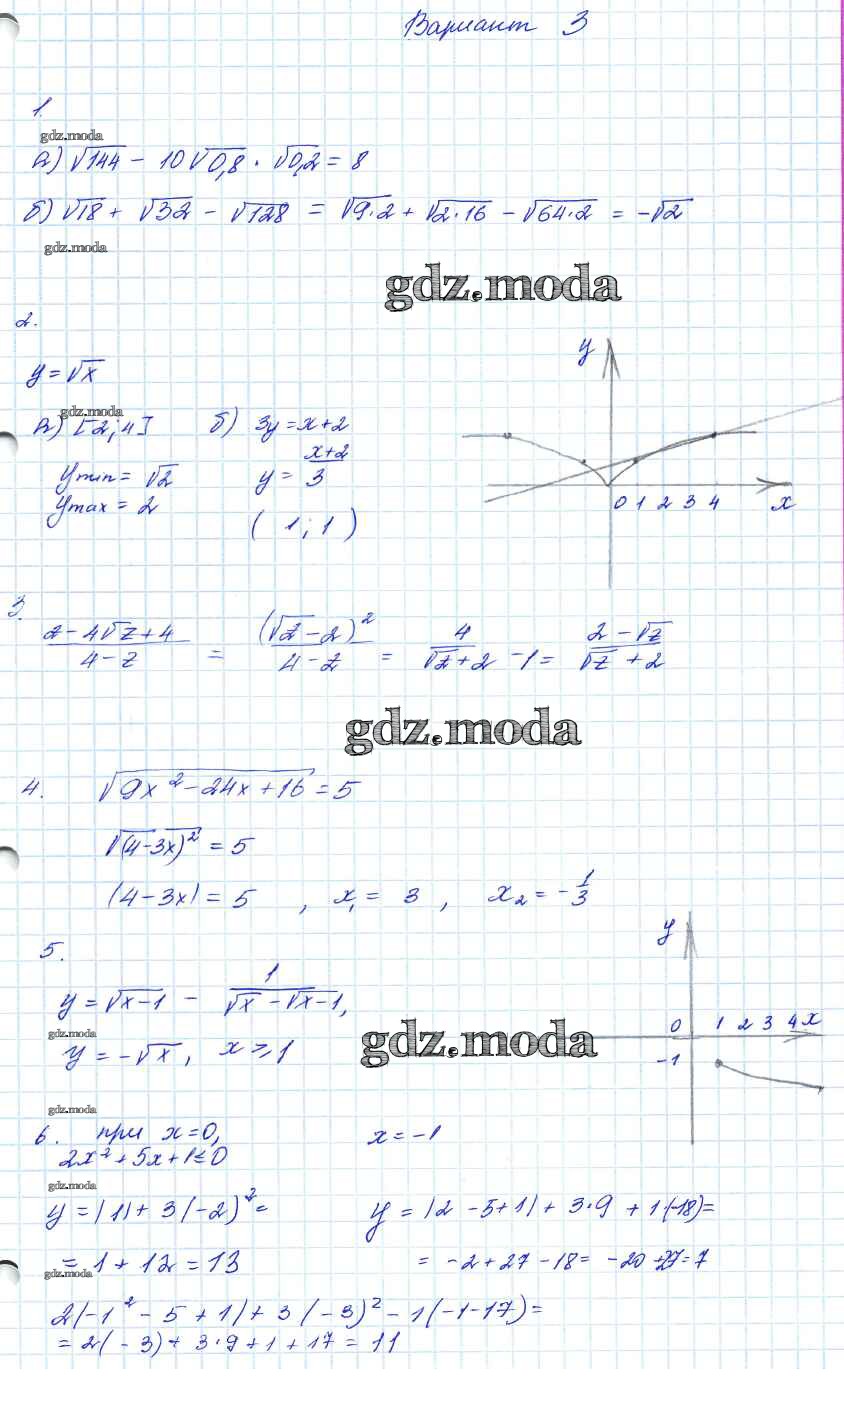 Вариант 3
1.
gdz.moda
а) √144 - 10√0,8 · √0,2 = 8
б) √18 + √32 - √128 = √9·2 + √2·16 - √64·2 = -√2
gdz.moda
gdz.moda
2.
y
y = √x
gdz.moda
а) [2; 4] б) 3y = x+2
y min = √2 y = (x+2)/3
y max = 2
( 1 ; 1 )
0 1 2 3 4 x
3.
(z - 4√z + 4)/(4 - z) = (√z - 2)²/(4 - z) = 4/(√z + 2) - 1 = (2 - √z)/(√z + 2)
gdz.moda
4. √9x² - 24x + 16 = 5
√(4-3x)² = 5
|4-3x| = 5 , x₁ = 3 , x₂ = -1/3
5.
y
y = √x-1 - 1/(√x - √x-1),
0 1 2 3 4 x
gdz.moda
gdz.moda
y = -√x , x ≥ 1
-1
gdz.moda
6. при x=0, x = -1
2x² + 5x + 1 ≤ 0
gdz.moda
y = |1| + 3(-2)² =
y = |2 - 5 + 1| + 3·9 + 1(-18) =
= 1 + 12 = 13
= -2 + 27 - 18 = -20 + 27 = 7
gdz.moda
2(-1² - 5 + 1) + 3(-3)² - 1(-1-17) =
= 2(-3) + 3·9 + 1 + 17 = 11